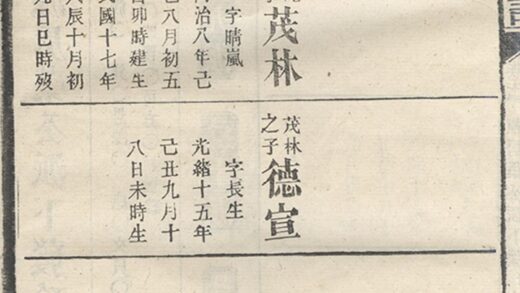 茂林
字晴嵐
同治八年己
巳八月初五
卯時建生
民國十七年
戊辰十月初
九日巳時歿
茂林之子
德宣
字長生
光緒十五年
己丑九月十
八日未時生